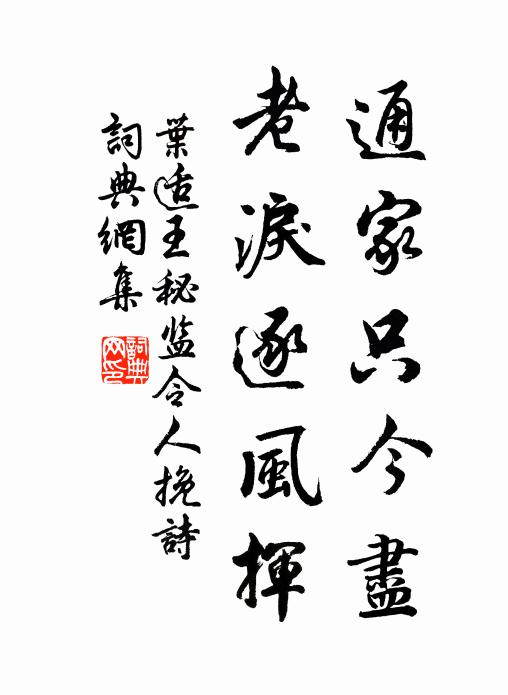 通家只今盡
老淚逐風揮
葉适王秘监令人挽詩
詞典網集
詞典网印